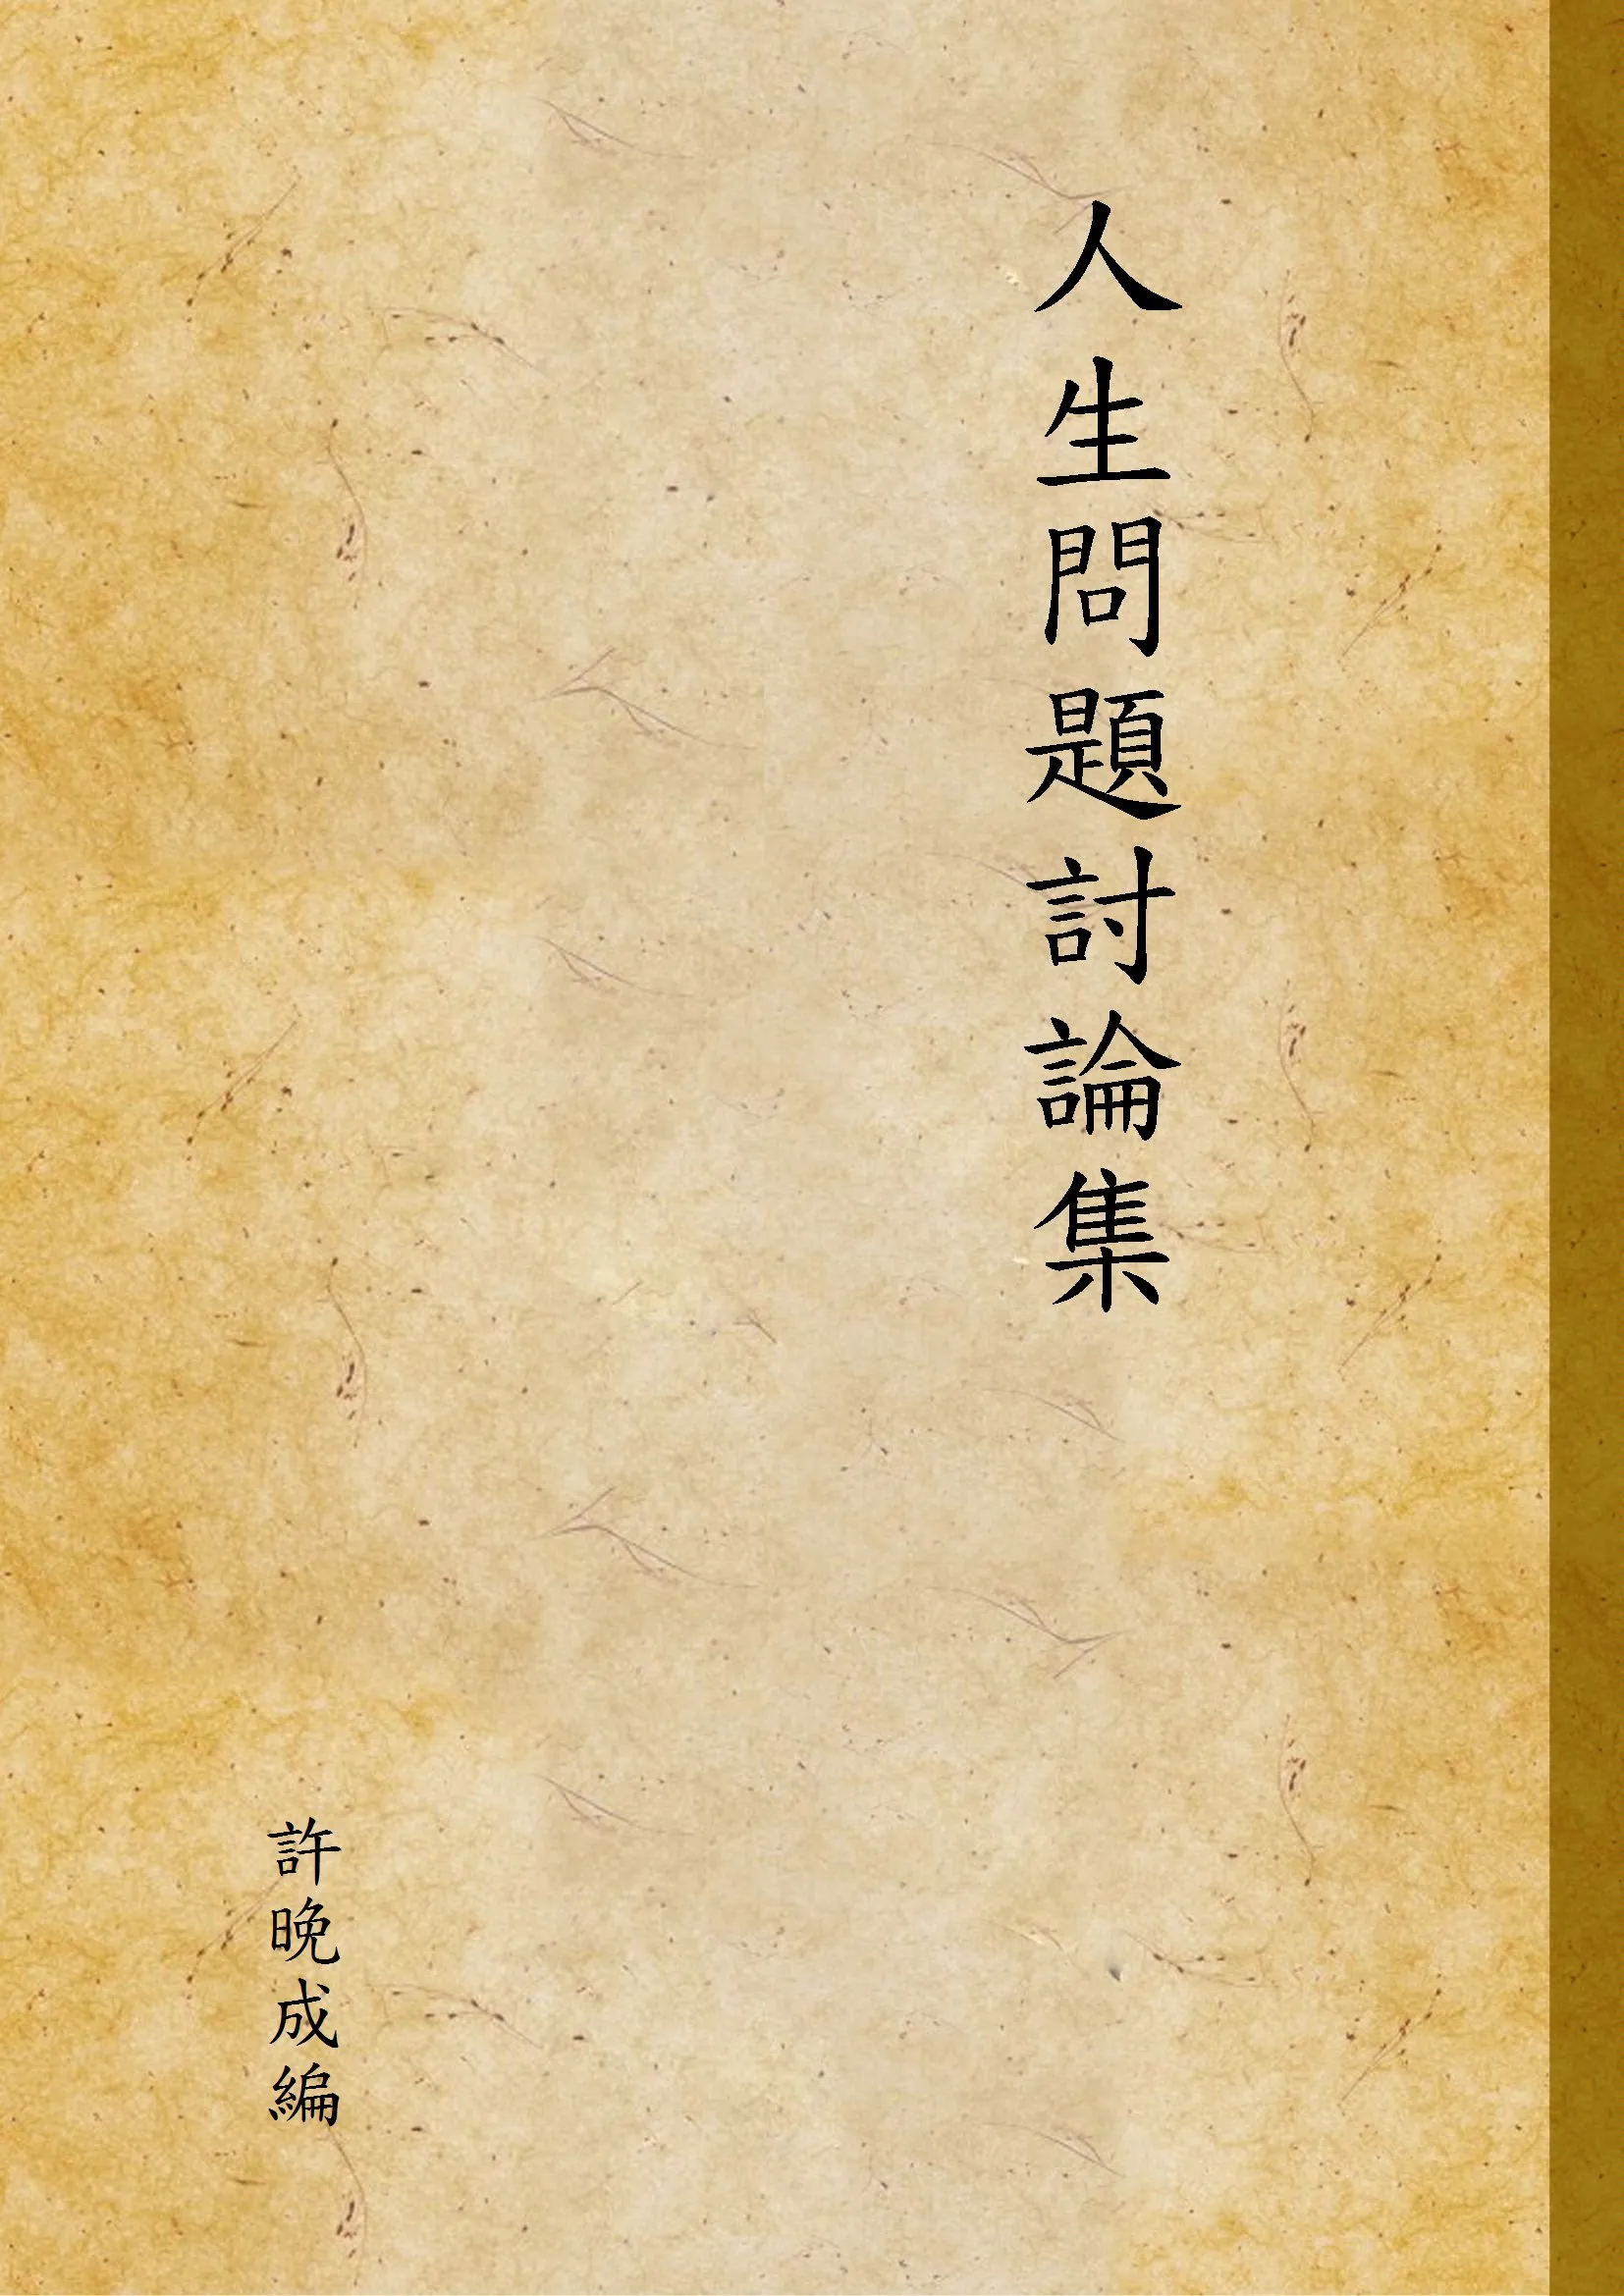 人生問題討論集
許晚成編